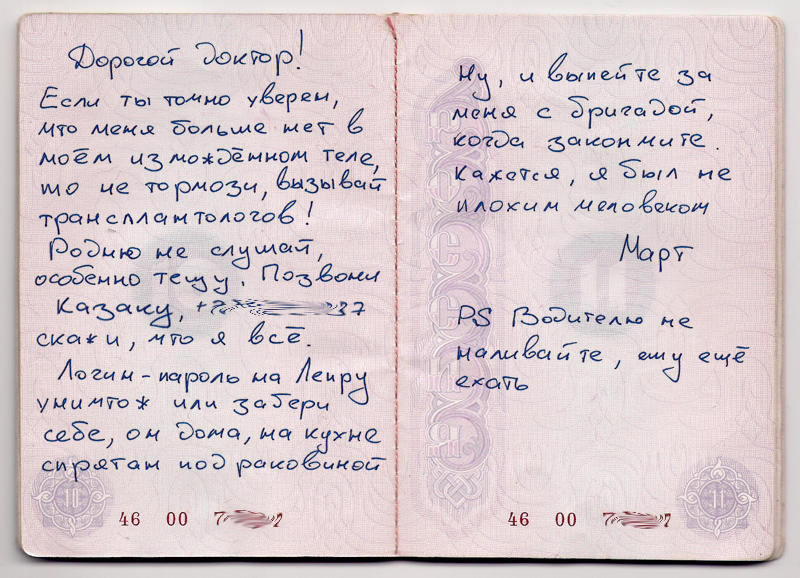 Дорогой доктор!
Если ты точно уверен,
что меня больше нет в
моём измождённом теле,
то не тормози, вызывай
трансплантологов!
Родню не слушай,
особенно тёщу. Позвони
Казаку, +7 37
скажи, что я всё.
Логин-пароль на Лепру
уничтож или забери
себе, он дома, на кухне
спрятан под раковиной
10
46 00 7
Ну, и выпейте за
меня с бригадой,
когда закончите.
Кажется, я был не
плохим человеком
Март
PS Водителю не
наливайте, ему ещё
ехать
11
46 00 7